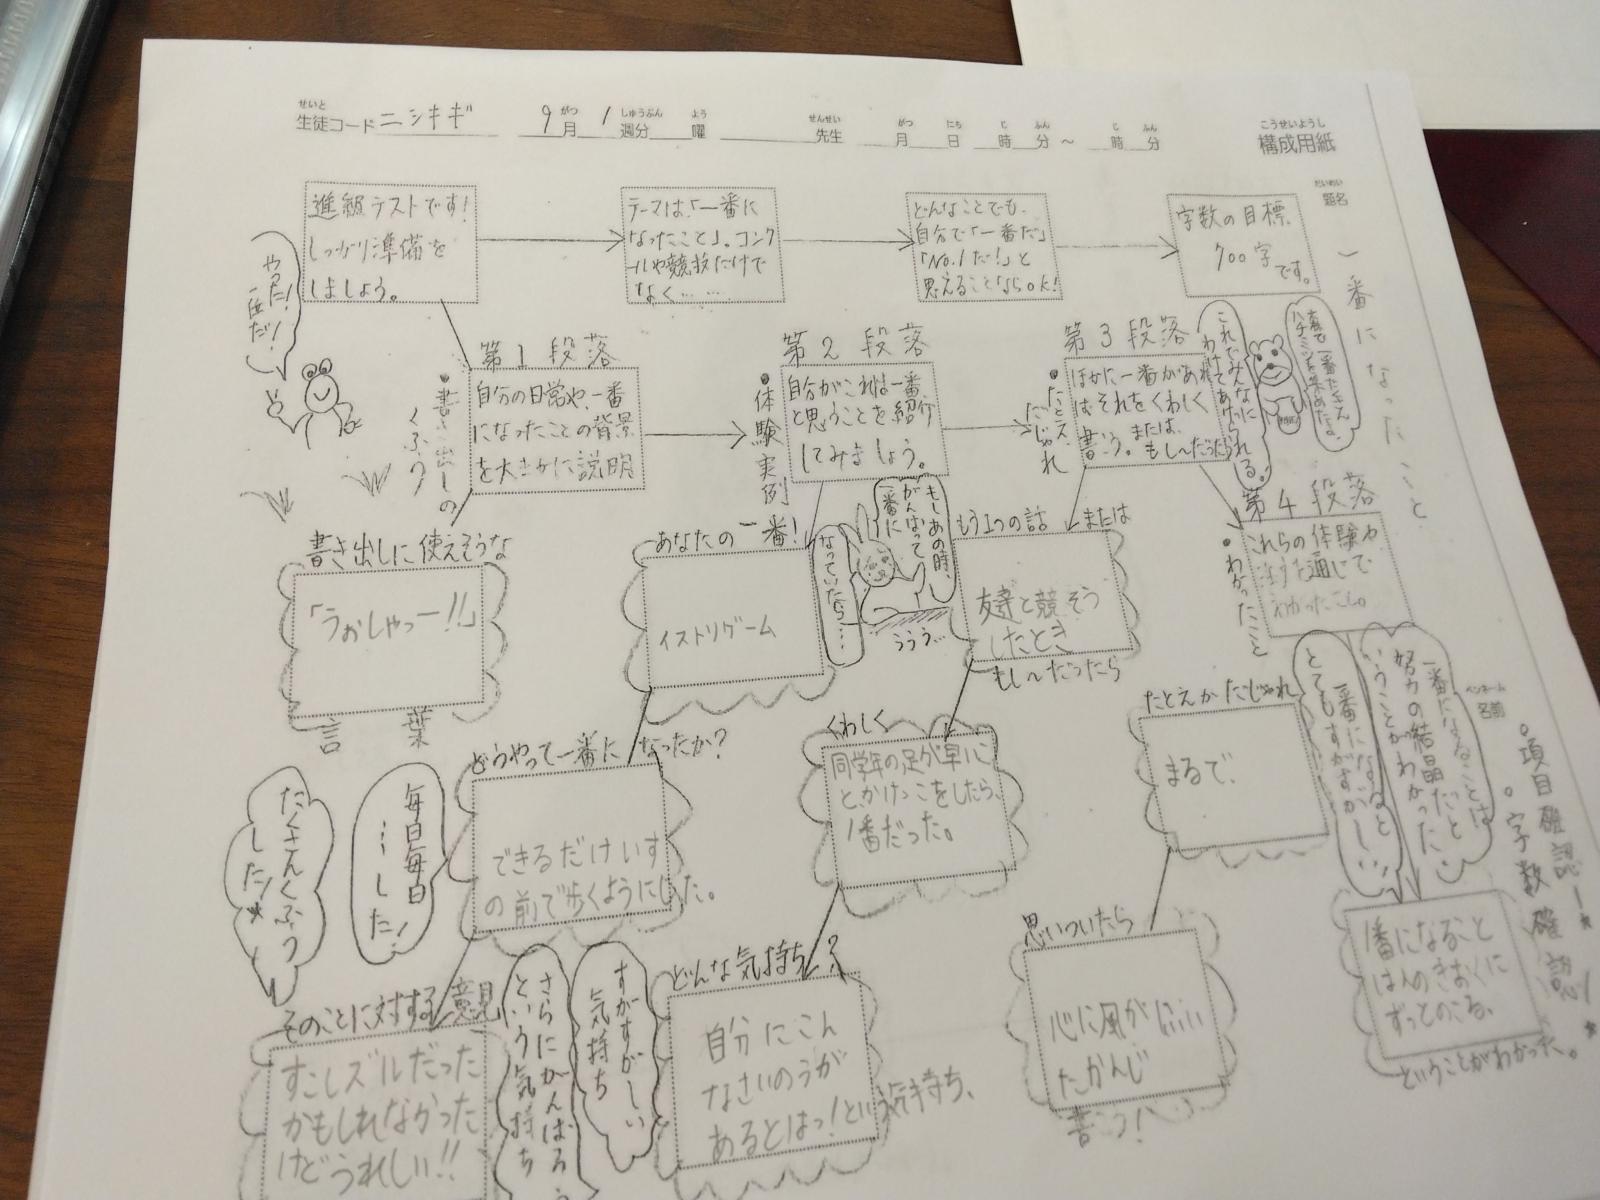 せいと
生徒コード ニシキギ
9月 1週分 曜
がつ しゅうぶん よう
せんせい
先生
がつ にち じ ふん じ ふん
月 日 時 分 ～ 時 分
こうせいようし
構成用紙
だいめい
題名
一番になったこと
進級テストです!
しっかり準備を
しましょう。
テーマは、「一番に
なったこと」。コンク
ールや競技だけで
なく……
どんなことでも、
自分で「一番だ」
「No.1だ!」と
思えることならOK!
字数の目標
700字
です。
やった!
一位だ!
第1段落
自分の日常や、一番
になったことの背景
を大まかに説明
・書き出しの
くふう
第2段落
自分がこれは一番
と思うことを紹介
してみましょう。
・体験実例
第3段落
ほかに一番があれ
ばそれをくわしく
書こう。または、
もし〜だったら
・たとえ
だじゃれ
これでみんなに
わけてあげられる。
第4段落
これらの体験や
通じて
わかったこと。
・わかったこと
書き出しに使えそうな
「うぉしゃっー!!」
言葉
あなたの一番!
イストリゲーム
もしあの時、
がんばって
一番に
なっていたら…
ううう…
もう1つの話
または
友達と競そう
したとき
もし〜だったら
どうやって一番になったか?
できるだけいす
の前で歩くようにした。
毎日毎日
…した!
たくさんくふう
した!
くわしく
同学年の足が早いこ
と、かけっこをしたら、
1番だった。
たとえかだじゃれ
まるで、
一番になると
とてもすがすがしい!
一番になることは
努力の結晶だと
いうことがわかった
ペンネーム
名前
・項目確認!
・字数確認!
そのことに対する意見
すこしズルだった
かもしれなかった
けどうれしい!!
さらにがんばろう
という気持ち
すがすがしい
気持ち
どんな気持ち?
自分にこん
なさいのうが
あるとはっ!という気持ち、
思いついたら
心に風がにいい
たかんじ
書こう!
1番になること
は人のきおくに
ずっとのこる、
ということがわかった。